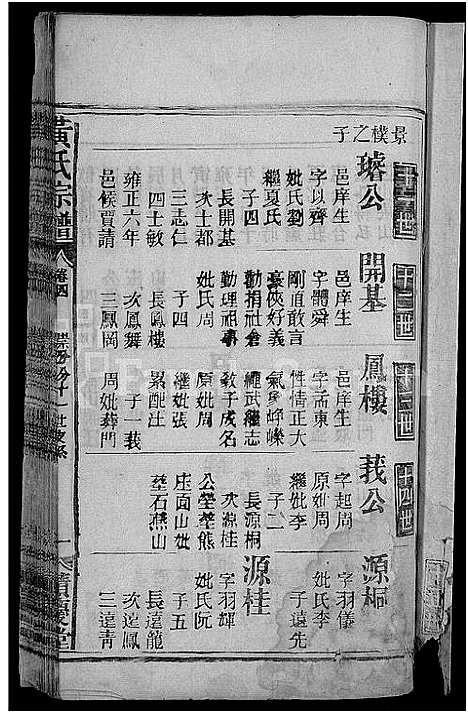 景樸之子
十一世
十二世
十三世
十四世
璿公
邑庠生
字以齊
妣氏劉
繼夏氏
子四
長開基
次士都
三志仁
四士敏
雍正六年
邑候賈請
開基
邑庠生
字體舜
剛直敢言
豪俠好義
勸捐社倉
勤理祖事
妣氏周
子四
長鳳樓
次鳳舞
三鳳岡
鳳樓
邑庠生
字孟東
性情正大
氣象崢嶸
繩武繼志
教子成名
原妣周
繼妣張
累配汪
子一莪
周妣葬門
莪公
字起周
原妣周
繼妣李
子二
長源桐
次源桂
公塋華熊
庄面山妣
塋石燕山
源桐
字羽儀
妣氏李
子遠先
源桂
字羽輝
妣氏阮
子五
長遠龍
次遠鳳
三遠青
黃氏宗譜
卷四
積慶堂